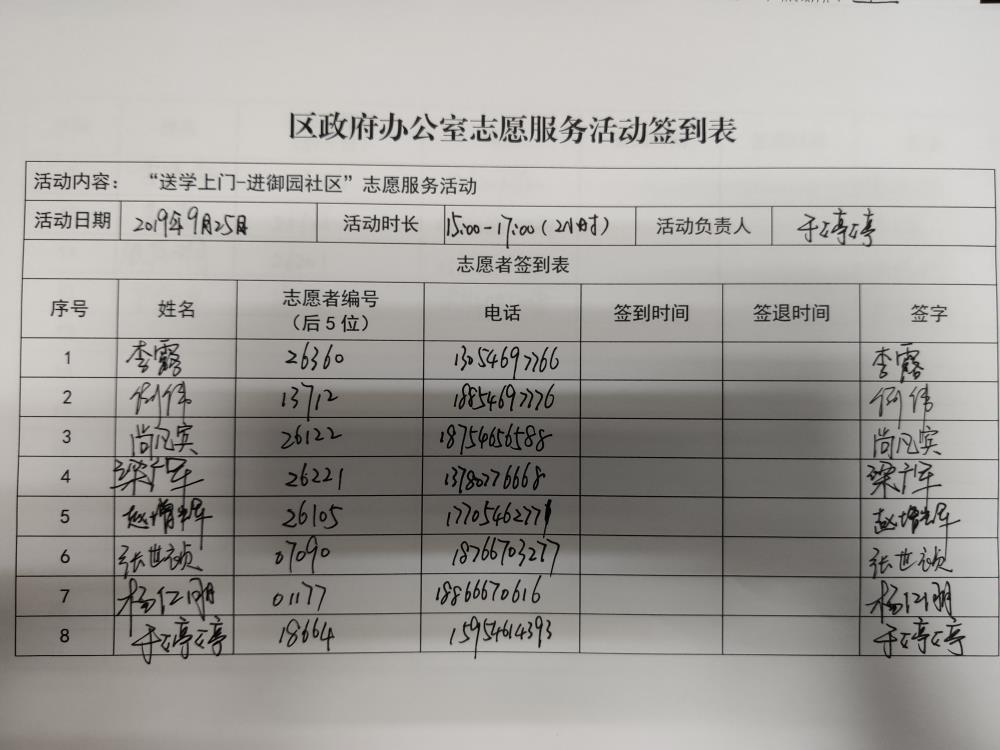 区政府办公室志愿服务活动签到表
活动内容： “送学上门-进御园社区”志愿服务活动
活动日期 2019年9月25日 活动时长 15:00-17:00（2小时） 活动负责人 于婷婷
志愿者签到表
序号 姓名 志愿者编号（后5位） 电话 签到时间 签退时间 签字
1 李露 26360 13054697766 李露
2 13712 18854697776
3 尚凡宾 26122 18754656588 尚凡宾
4 梁广军 26221 13780776668 梁广军
5 赵增辉 26105 17705462771 赵增辉
6 张世祯 07090 18766703277 张世祯
7 杨仁明 01177 18866670616 杨仁明
8 于婷婷 18664 15954614393 于婷婷